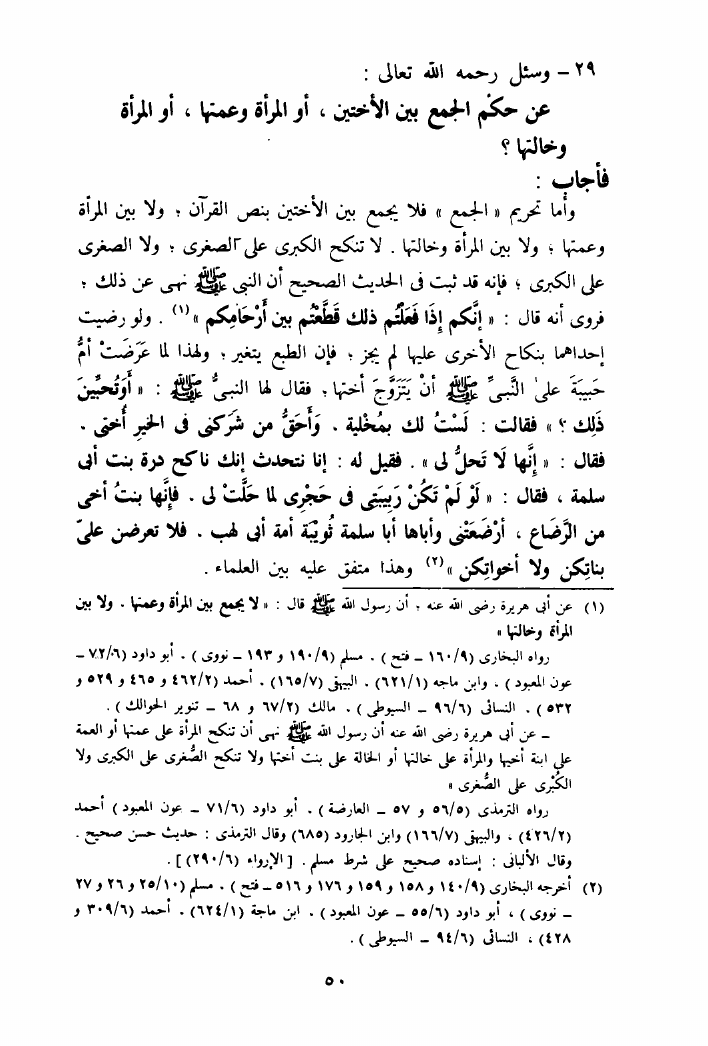 ٢٩ – وسئل رحمه الله تعالى :
عن حكْم الجمع بين الأختين ، أو المرأة وعمتها ، أو المرأة
وخالتها ؟
فأجاب :
وأما تحريم « الجمع » فلا يجمع بين الأختين بنص القرآن ؛ ولا بين المرأة
وعمتها ؛ ولا بين المرأة وخالتها . لا تنكح الكبرى على الصغرى ؛ ولا الصغرى
على الكبرى ؛ فإنه قد ثبت فى الحديث الصحيح أن النبى ﷺ نهى عن ذلك ؛
فروى أنه قال : « إنَّكم إذَا فَعَلْتُم ذلك قَطَّعْتُم بين أَرْحَامِكم »(١) . ولو رضيت
إحداهما بنكاح الأخرى عليها لم يجز ؛ فإن الطبع يتغير ؛ ولهذا لما عَرَضَتْ أمُّ
حَبِيبَةَ على النَّبىِّ ﷺ أنْ يَتَزَوَّجَ أختها ؛ فقال لها النبىُّ ﷺ : « أَوَتُحبِّينَ
ذَلِك ؟ » فقالت : لَسْتُ لك بمُخْلية . وَأَحَقُّ من شَرَكنى فى الخيرِ أُختى .
فقال : « إنَّها لَا تَحلُّ لى » . فقيل له : إنا نتحدث إنك ناكح درة بنت أبى
سلمة ، فقال : « لَوْ لَمْ تَكُنْ رَبِيبَتِى فى حَجْرِى لما حَلَّتْ لى . فإنَّها بنتُ أخى
من الرَّضَاع ، أرْضَعَتْنى وأباها أبا سلمة ثُويْبَة أمة أبى لهب . فلا تعرضن علىّ
بناتِكن ولا أخواتِكن »(٢) وهذا متفق عليه بين العلماء .
(١) عن أبى هريرة رضى الله عنه ؛ أن رسول الله ﷺ قال : « لا يجمع بين المرأة وعمتها . ولا بين
المرأة وخالتها »
رواه البخارى (١٦٠/٩ – فتح ) . مسلم (١٩٠/٩ و ١٩٣ – نووى ) . أبو داود (٧٢/٦ –
عون المعبود ) ، وابن ماجه (٦٢١/١) . البيهقى (١٦٥/٧) . أحمد (٤٦٢/٢ و ٤٦٥ و ٥٢٩ و
٥٣٢ ) . النسائى (٩٦/٦ – السيوطى ) . مالك (٦٧/٢ و ٦٨ – تنوير الحوالك ) .
– عن أبى هريرة رضى الله عنه أن رسول الله ﷺ نهى أن تنكح المرأة على عمتها أو العمة
على ابنة أخيها والمرأة على خالتها أو الخالة على بنت أختها ولا تنكح الصُّغرى على الكبرى ولا
الكُبْرى على الصُّغرى »
رواه الترمذى (٥٦/٥ و ٥٧ – العارضة ) . أبو داود (٧١/٦ – عون المعبود ) أحمد
(٤٢٦/٢) ، والبيهقى (١٦٦/٧) وابن الجارود (٦٨٥) وقال الترمذى : حديث حسن صحيح .
وقال الألبانى : إسناده صحيح على شرط مسلم . [ الإرواء (٢٩٠/٦) ] .
(٢) أخرجه البخارى (١٤٠/٩ و ١٥٨ و ١٥٩ و ١٧٦ و ٥١٦ – فتح ) . مسلم (٢٥/١٠ و ٢٦ و ٢٧
– نووى ) ، أبو داود (٥٥/٦ – عون المعبود ) . ابن ماجة (٦٢٤/١) . أحمد (٣٠٩/٦ و
٤٢٨) ، النسائى (٩٤/٦ – السيوطى ) .
٥٠